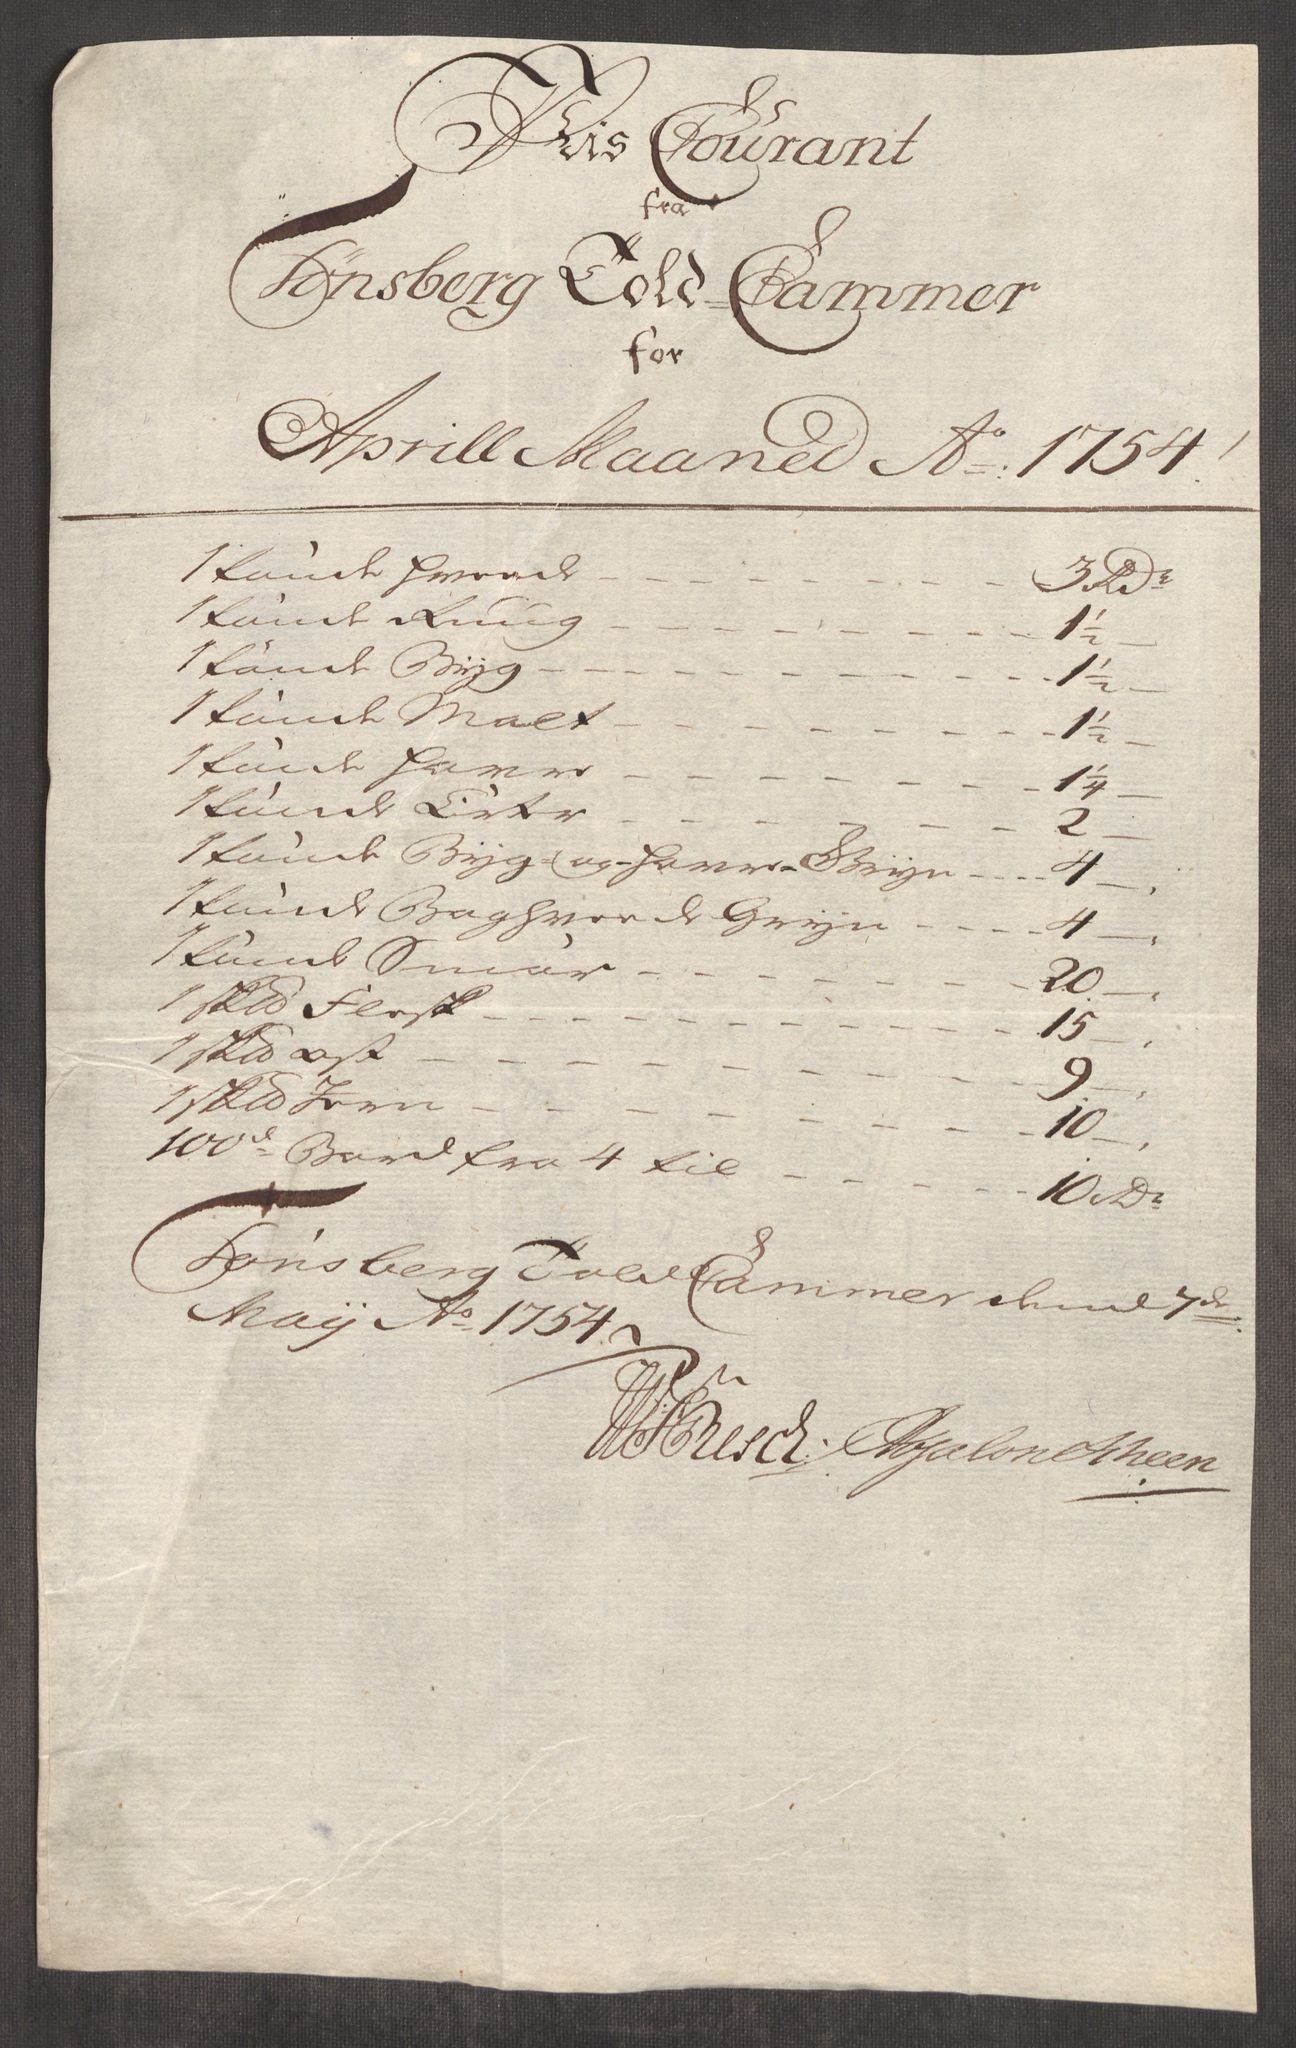 Priis Courant
fra
Tønsberg Told-Cammer
for
Aprill Maaned Ao: 1754
1 tønde Hveede - - - 3 Rdr
1 tønde Ruug - - - 1 1/2 —
1 tønde Byg - - - 1 1/2 —
1 tønde Malt - - - 1 1/2 —
1 tønde Havre - - - 1 1/4 —
1 tønde Erter - - - 2 —
1 tønde Byg- og Havre-Gryn - - - 4 —
1 tønde Boghveede Gryn - - - 4 —
1 tønde Smiør - - - 20 —
1 sk℔d Flesk - - - 15 —
1 sk℔d Ost - - - 9 —
1 sk℔d Jern - - - 10 —
100de Bord fra 4 til - - - 10 Rdr
Tønsberg Told Cammer dend 7de
Maij Ao 1754
Resch. Absalon Scheen